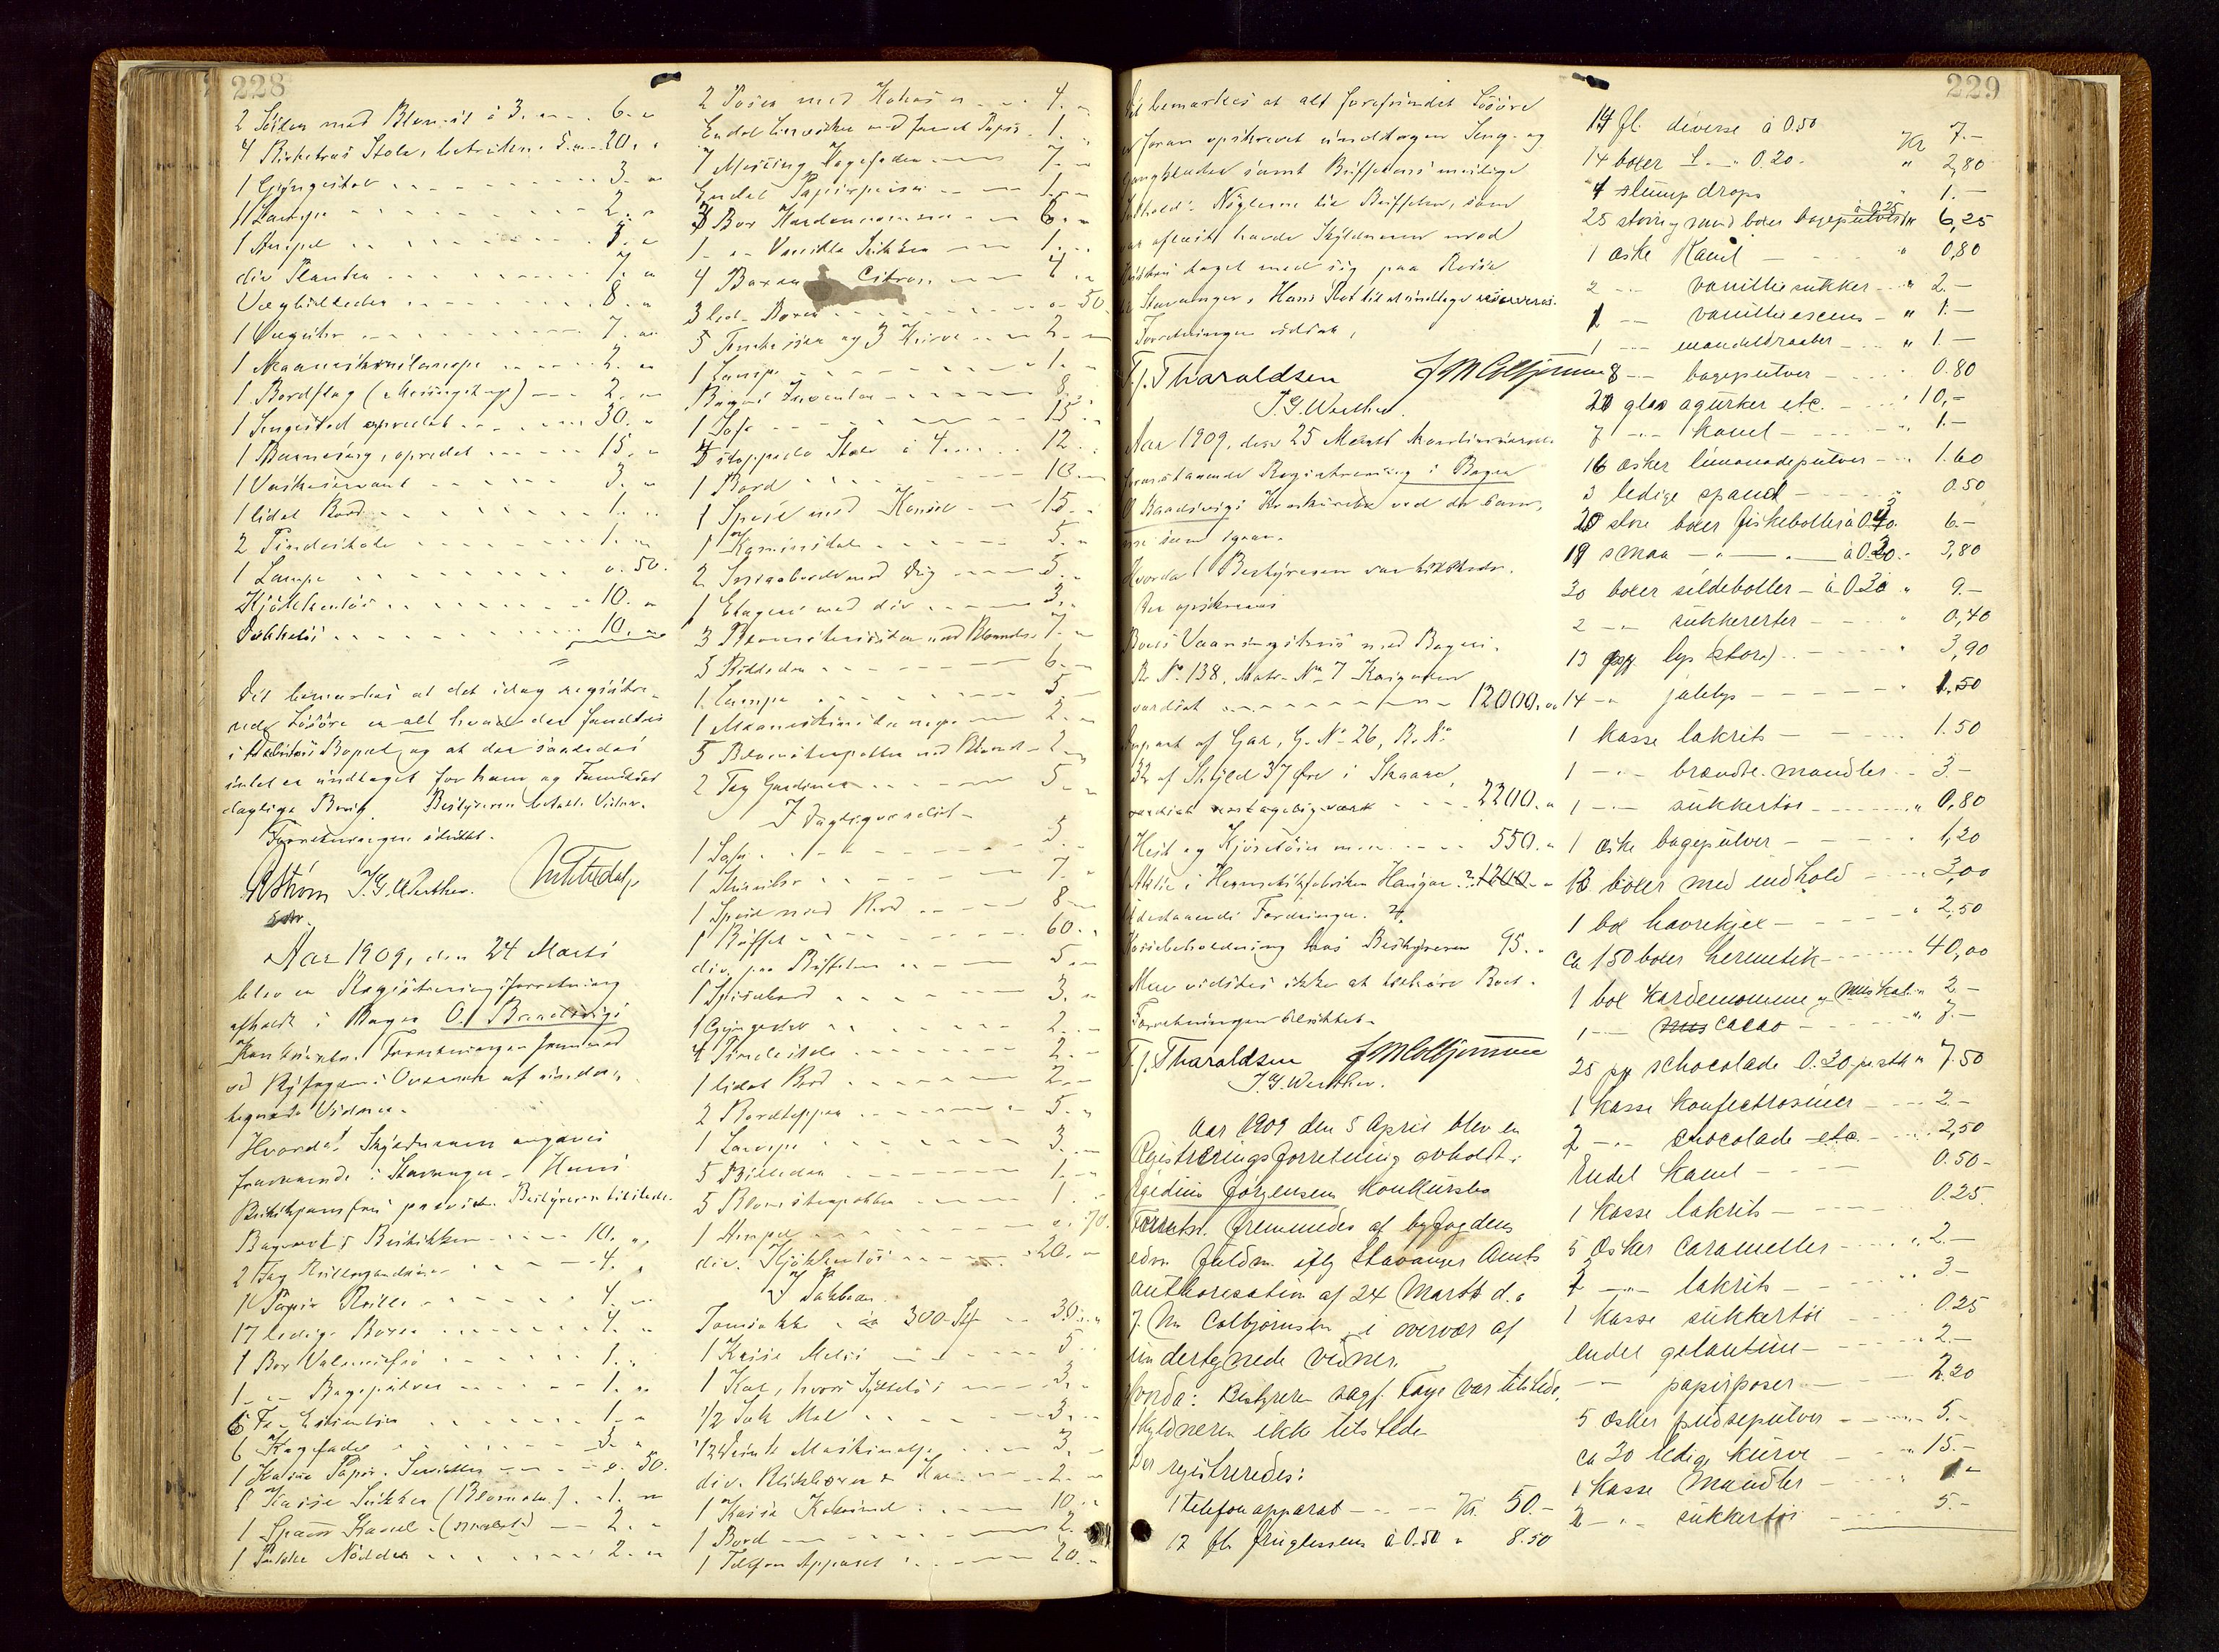 228
2 Søiler med Blomst à 3. " 6. "
4 Birketræs Stole, betrukne. 5. " 20. "
1 Gyngestol 3. "
1 Lampe 2. "
1 Ampel
div Planter 7. "
Vægbilleder 8. "
1 Vægühr 7. "
1 Maaneskinslampe 2. "
1 Bordflag (Messingstang) 2. "
1 Sengested opredet 30. "
1 Barneseng, opredet 15. "
1 Vaskeservant 3. "
1 lidet Bord 1. "
2 Pindestole 1. "
1 Lampe 0. 50.
Kjøkkentøi 10. "
Dækketøi 10. "
Det bemærkes at det idag registre-
rede Løsøre er alt hvad der fandtes
i Debitors Bopæl og at der saaledes
intet er undtaget for ham og Families
daglige Brug. Bestyreren betalte Vidner.
Forretningen sluttet.
AStrøm T. G. Werther.
Aar 1909, den 24 Marts
blev en Registreringsforretning
afholdt i Bager O. Brandsvigs
Konkursbo. Forretningen fremmed
ved Byfogden i Overvær af under-
tegnede Vidner.
Hvorda! Skyldneren angaves
fraværende i Stavanger. Hans
Bestyreren tilstede.
Bagerovt i Butikken 10. "
2 Fag Rullegardiner 4. "
1 Papir Rulle 4. "
17 ledige Boxer 4. "
1 Box Valmuefrø 1. "
1 " Bagepulver 1. "
6 Fl. Essentser 1. "
6 Kagefade 3. "
1 Kasse Papir. Servietter 0. 50.
1 Kasse Sukker (Blomster.) 1. "
1 Spann Kanel (malet) 2. "
1 Pakke Nødder 2. "
2 Poser med Kokos 4. "
Endel Lerreker med farvet Papir 1. "
7 Messing Kagefader 7. "
Endel Papirposer 1. "
3 Box Kardemomme 6. "
1 " Vanille Sukker 1. "
4 Boxer Citron 4. "
3 led. Boxer 0. 50.
5 Penkasser og 3 Kurve 2. "
1 Lampe 1. "
Bageri Inventar 8. "
1 Sofa 15. "
3 stoppede Stole à 4. " 12. "
1 Bord 10. "
1 Speil med Konsol 15. "
1 Kaminstol 5. "
2 Smaaborde med Dug 5. "
1 Etagere med div 3. "
3 Blomsterkrukker med Blomster 7. "
3 Billeder 6. "
1 Lampe 5. "
1 Maaneskinslampe 2. "
5 Blomsterpotter med Blomst 2. "
2 Fag Gardiner 5. "
I Dagligværelset
1 Sofa 5.
1 Skrivebor 7. "
1 Speil med Bord 8
1 Buffet 60. "
div. paa Buffeten 5. "
1 Spisebord 3. "
1 Gyngestol 2. "
4 Pindestole 2. "
1 lidet Bord 2. "
2 Bordtepper 5. "
1 Lampe 3. "
5 Billeder 1. "
5 Blomsterpotter 1. "
1 Ampel 0. 70.
div. Kjøkkentøi 20. "
I Pakboden
Tomsække ca 300 Stk 30. "
1 Kasse Melis 5. "
1 Kar, hvori Syltetøi 3. "
1/2 Sæk Mel 3. "
1/2 Tønde Maskinolje 3. "
div. Blikboxer & Kar 2. "
1 Kasse Kokosmel 10. "
1 Bord 2. "
1 Telefon Apparat 20. "
229
Det bemærkes at alt forefundet Løsøre
er foran opskrevet undtagen Seng- og
Gangklæder samt Buffetens mulige
Indhold. Nøglerne til Buffeten, som
var aflaast, havde Skyldneren med
Hustru taget med sig paa Reise
til Stavanger. Hans Ret til at undtage reserveres.
Forretningen udsat.
T. J. Tharaldsen JMColbjørnsen
T. G. Werther.
Aar 1909, den 25 Marts kontinueredes
foranstaaende Registrering i Bager
O. Brandsvigs Konkursbo ved de samme
som igaar.
Hvorda! Bestyreren var tilstede.
Der opskreves
Boets Vaaningshus med Bageri.
Br. No 138, Matr. No 7 Kaigaden
værdsat 12000. "
Anpart af Gar, G. No 26, B. No
32 af Skyld 37 Øre i Skaare
værdsat 2200. "
Hest og Kjøretøier m.m. 550. "
1 Aktie i Hermetikfabriken Haugar ? 1200. "
Udestaaende Fordringer. ?
Kassebeholdning hos Bestyreren 95. "
Mere vidstes ikke at tilhøre Boet.
Forretningen sluttet.
T. J. Tharaldsen JMColbjørnsen
T. G. Werther.
Aar 1909 den 5 April blev en
Registreringsforretning avholdt i
Egedius Jørgensens Konkursbo
Forretn. fremmedes af byfogdens
edsv. fuldm. iflg Stavanger Amts
authorisation af 24 Marts d.a
J. M. Colbjørnsen i overvær af
undertegnede vidner.
Hvorda: Bestyreren sagf. Faye var tilstede,
skyldneren ikke tilstede
Der registreredes:
1 telefonapparat Kr. 50.-
17 fl. frugtessens à 0.50 " 8.50
14 fl. diverse à 0.50 Kr 7.-
14 boxer S. " 0.20 " 2,80
4 slump drops 1.-
25 store og smaa boxer bagepulver à 0.25 " 6,25
1 æske Kanel " 0,80
2 " vanillesukker " 2.-
1 " vanilleesens " 1.-
1 " mandeldraaber " 1.-
8 " bagepulver 0.80
20 glas agurker etc. 10,-
7 " Kanel 1.-
16 æsker limonadepulver 1.60
3 ledige spand 0.50
20 store boxer fiskeboller à 0.30 6.-
19 smaa " à 0.20 3,80
30 boxer sildeboller à 0.30 " 9.-
2 " sukkererter " 0,40
13 pk. lys store) " 3,90
14 " julelys " 1.50
1 kasse lakrits 1.50
1 " brændte mandler 3.-
1 " sukkertøi " 0,80
1 æske bagepulver 1,20
12 boxer med indhold 3,00
1 box havrekjex 2,50
ca 150 boxer hermetik 40,00
1 box Kardemomme og muskat " 2.-
1 " cacao " 7.-
25 pk schocolade 0.30 pr stk " 7.50
1 Kasse Konfektrosiner 2.-
2 " chocolade etc. 2,50
Endel Kanel 0.50
1 Kasse lakrits 0.25
5 æsker carameller 2.-
2 " lakrits 3.-
1 Kasse sukkertøi 0.25
endel gelantine 2.-
" papirposer 2.20
5 æsker pudsepulver 5.-
ca 30 ledige Kurve 15.-
1 Kasse Mandler
2 " sukkertøi 5.-